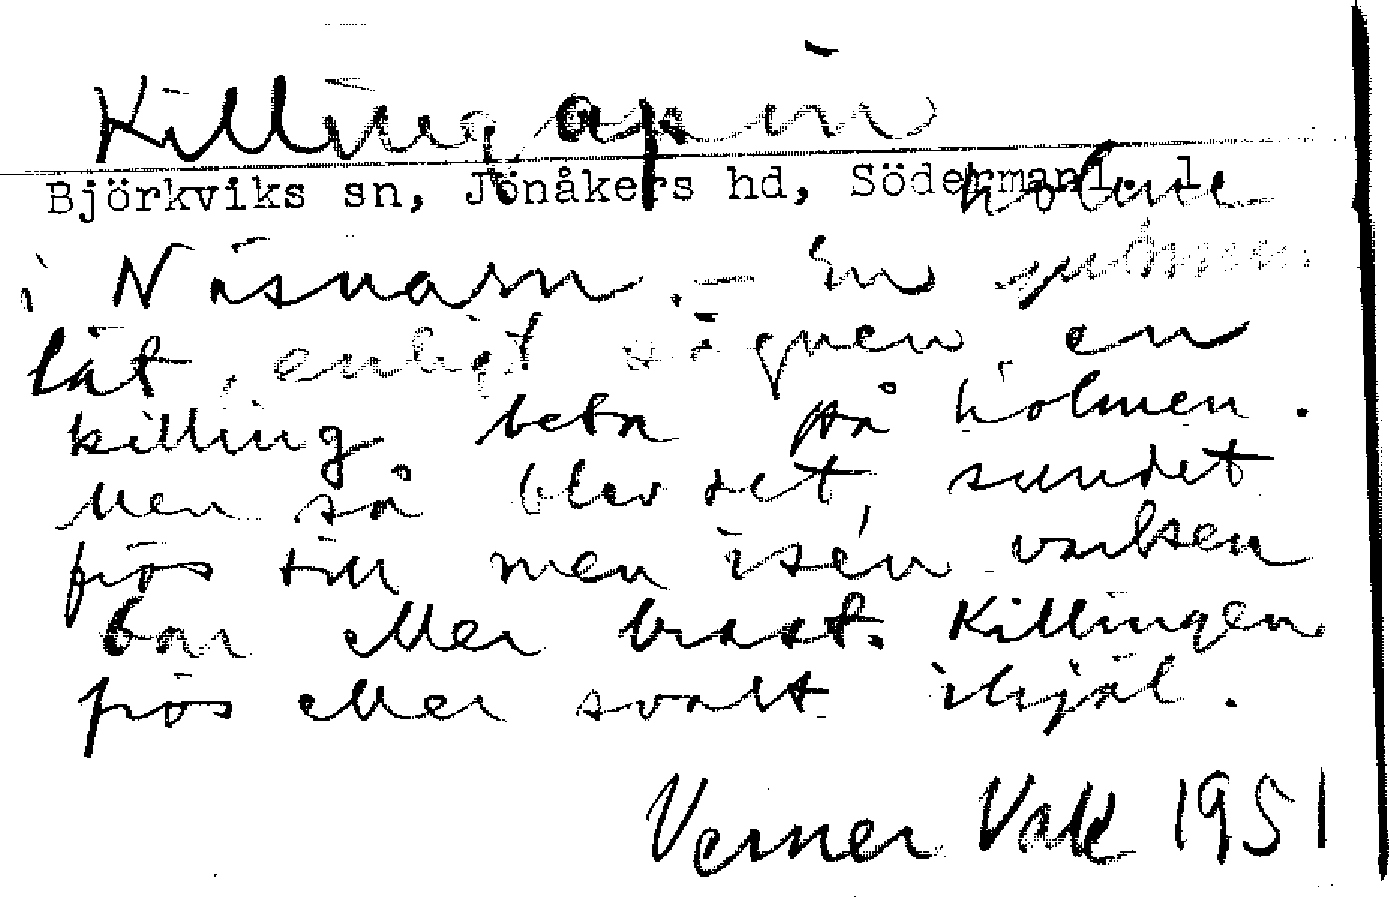 Killingapin
Björkviks sn, Jönåkers hd, Södermanl. l.
holme
i Näsnaren. - En
lät, enligt sägnen, en
killing beta på holmen.
Men så blev det, sundet
frös till men isen varken
bar eller brast. Killingen
frös eller svalt ihjäl.
Verner Vall 1951